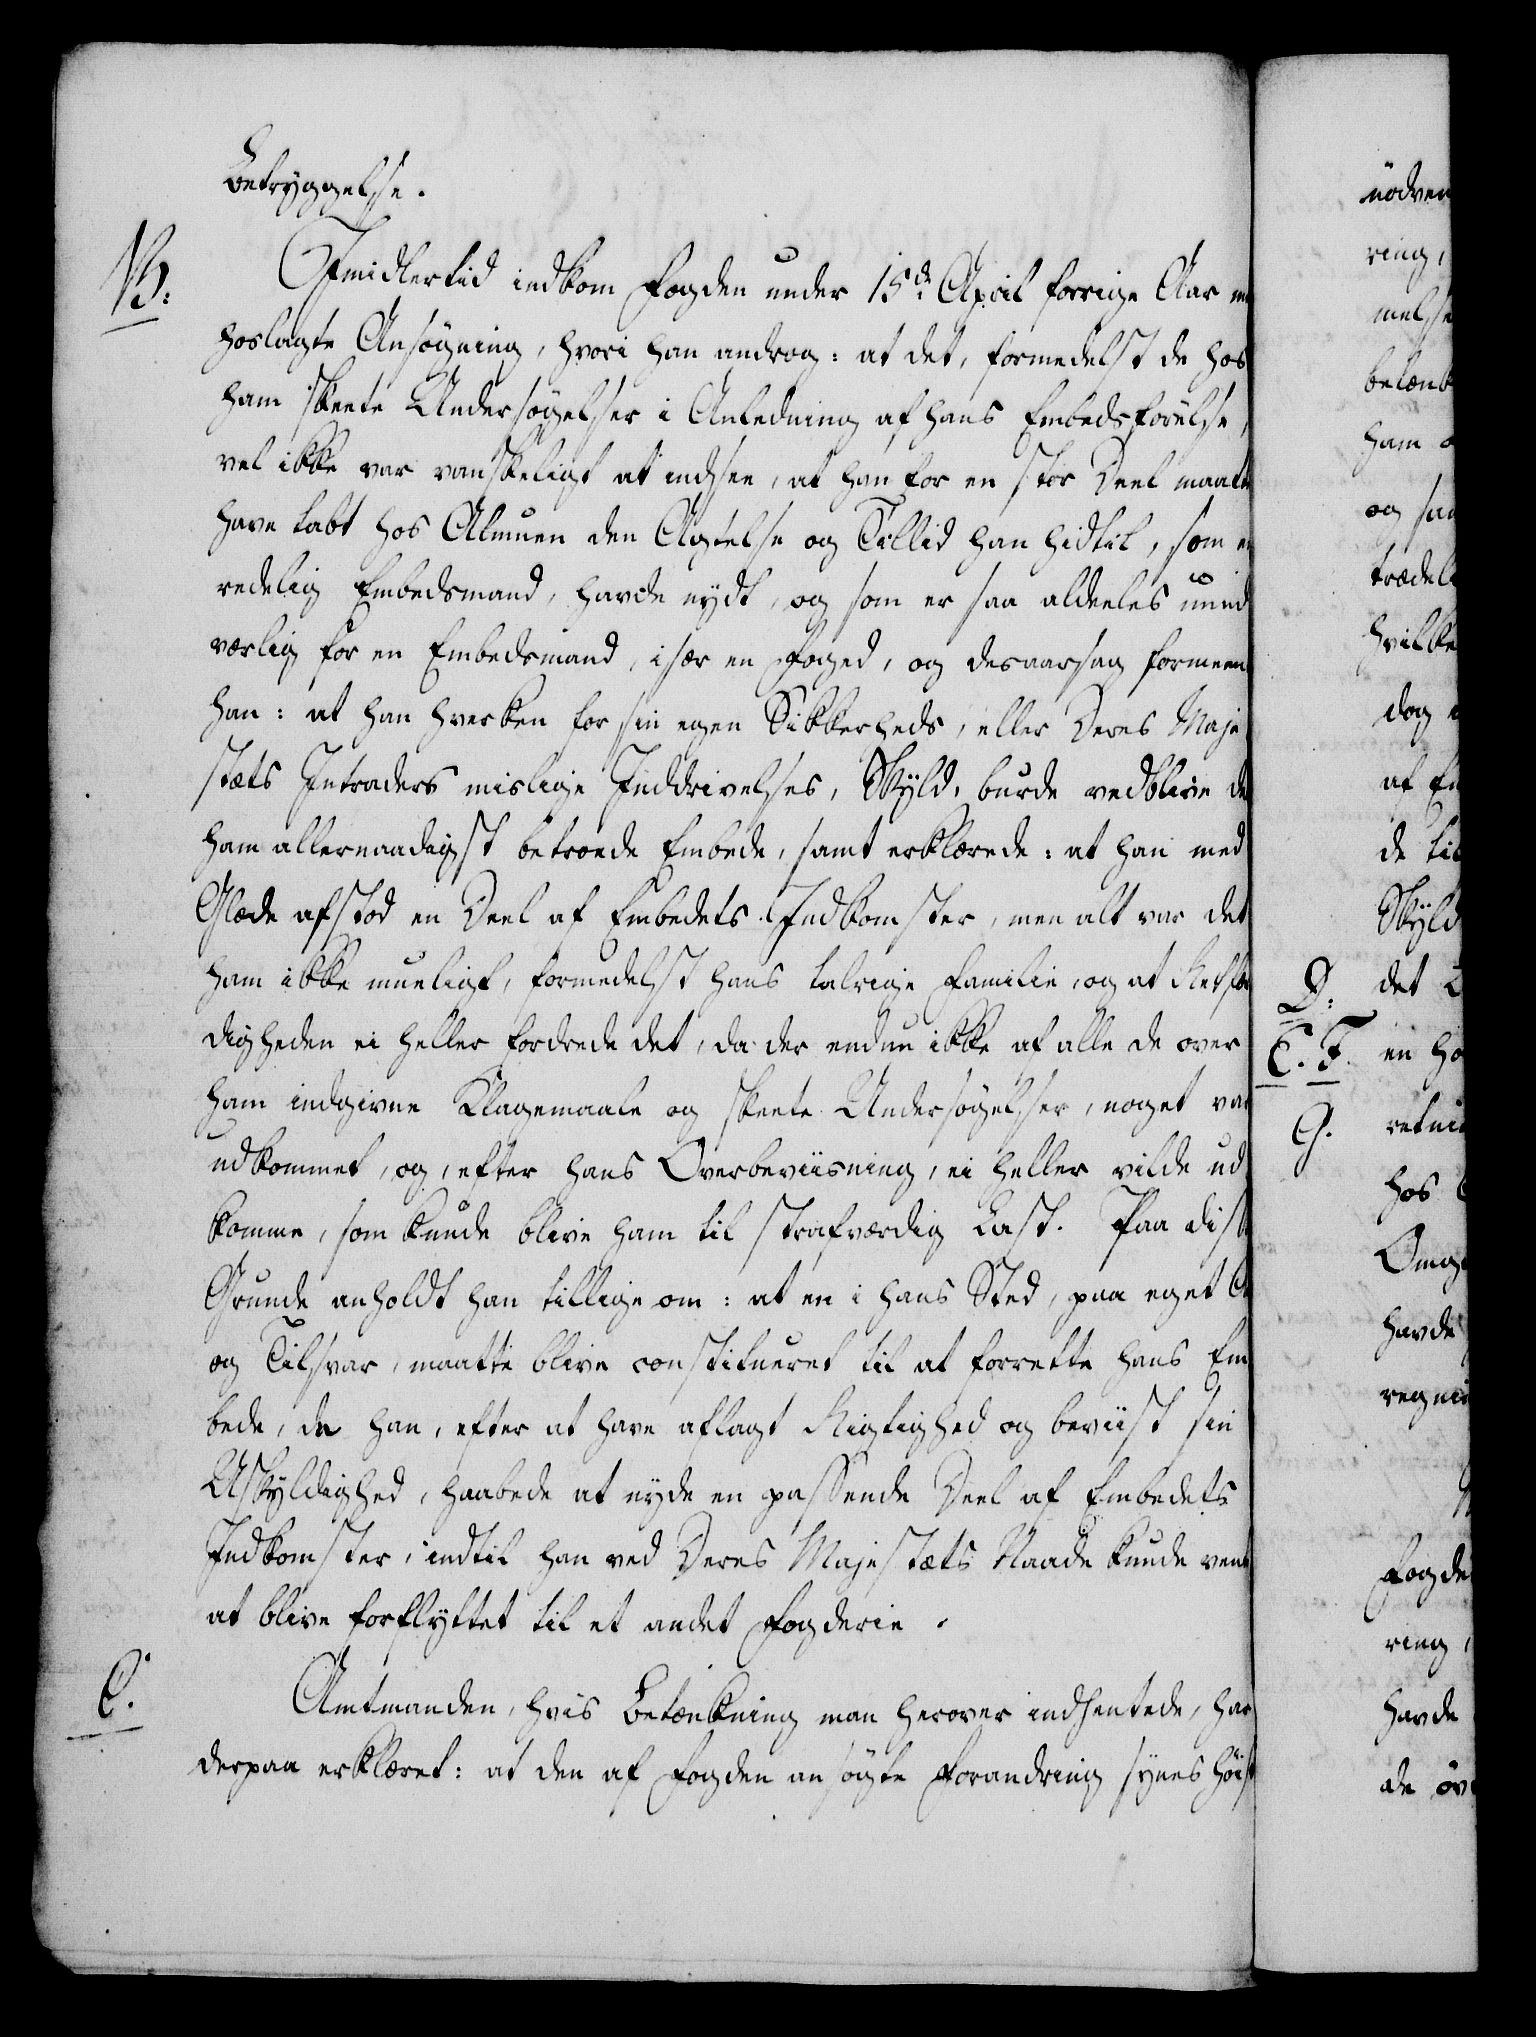 Betryggelse.
B: Imidlertid indkom Fogden under 15de April forrige Aar
hoslagte Ansøgning, hvori han androg: at det, formedelst de hos
ham skeete Undersøgelser i Anledning af hans Embedsførelse,
vel ikke var vanskeligt at indsee, at han for en stor Deel maatte
have tabt hos Almuen den Agtelse og Tillid han hidtil, som en
redelig Embedsmand, havde nydt, og som er saa aldeeles uund
værlig for en Embedsmand, især en Foged, og desaarsag formeen
han: at han hverken for sin egen Sikkerheds, eller Deres Maje
stæts Intraders mislige Inddrivelses, Skyld, burde vedblive de
ham allernaadigst betroede Embede, samt erklærede: at han med
Glæde afstod en Deel af Embedets Indkomster, men alt var det
ham ikke mueligt, formedelst hans talrige Familie, og at Retfær
digheden ei heller fordrede det, da der endnu ikke af alle de over
ham indgivne Klagemaale og skeete Undersøgelser, noget var
udkommet, og, efter hans Overbeviisning, ei heller vilde ud
komme, som kunde blive ham til strafværdig Last. Paa disse
Grunde anholdt han tillige om: at en i hans Sted, paa eget
og Tilsvar, maatte blive constitueret til at forrette hans Em
bede, da han, efter at have aflagt Rigtighed og beviist sin
Uskyldighed, haabede at nyde en passende Deel af Embedets
Indkomster, indtil han ved Deres Majestæts Naade kunde vente
at blive forflyttet til et andet Fogderie.
C. Amtmanden, hvis Betænkning man herover indhentede, har
derpaa erklæret: at den af Fogden ansøgte Forandring synes høist
nødven
ring,
melse
betænk
ham
og saa
trædel
hvilke
dog
af Em
de til
Skyld
D: det
E. F. en ho
G. retni
hos
Omg
havde
regni
Fogde
ring,
havde
de øv